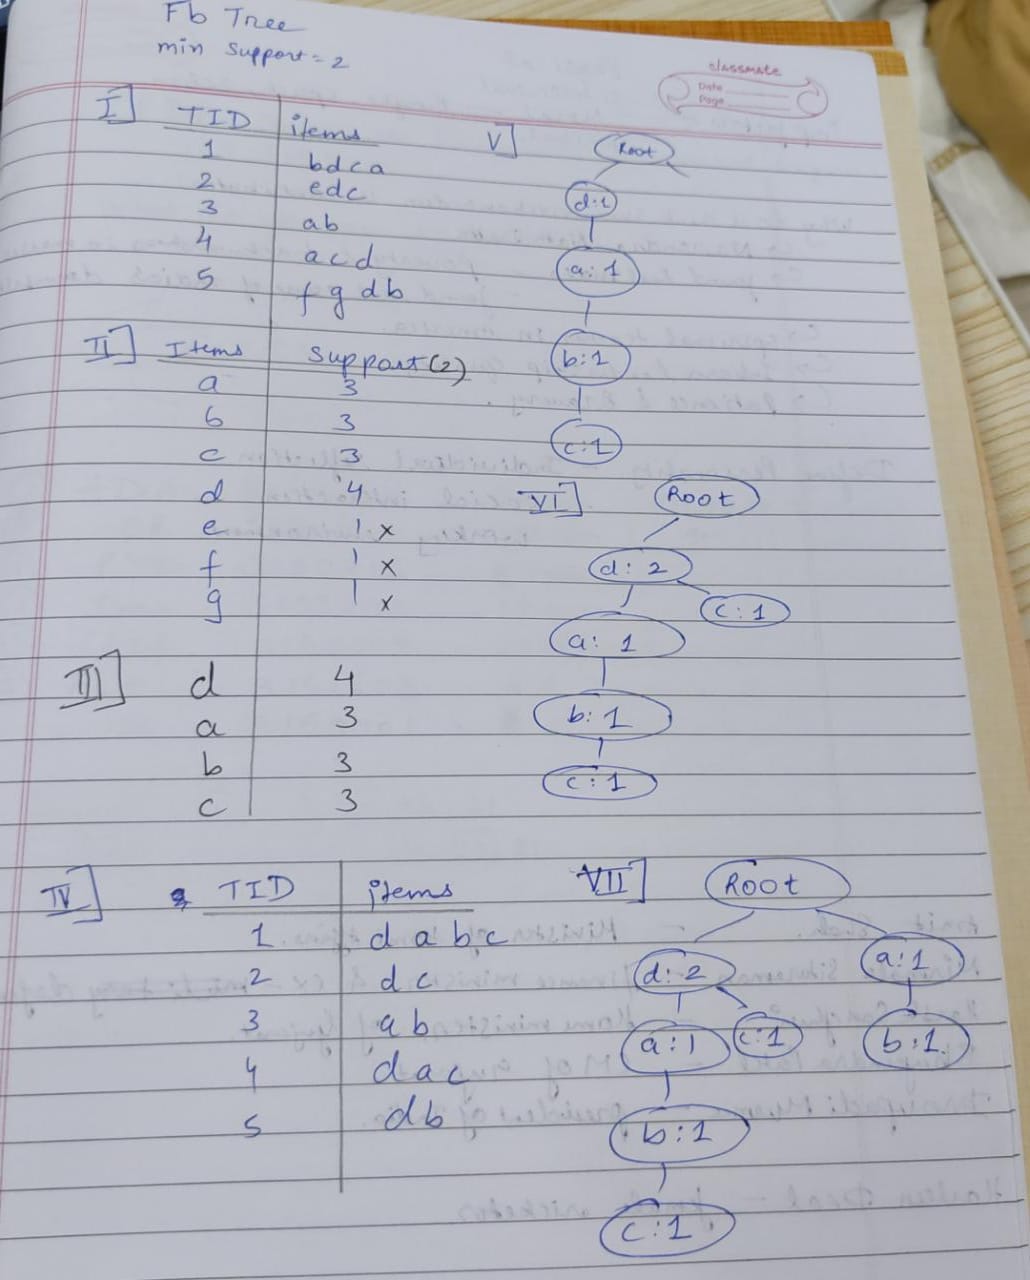 Fb Tree
min Support = 2
classmate
Date
Page
I] TID items
1 bdca
2 edc
3 ab
4 acd
5 fgdb
II] Items Support(2)
a 3
b 3
c 3
d 4
e 1 x
f 1 x
g 1 x
III] d 4
a 3
b 3
c 3
IV] TID items
1 d a b c
2 d c
3 a b
4 d a c
5 d b
V] Root
d:1
a:1
b:1
c:1
VI] Root
d:2
c:1
a:1
b:1
c:1
VII] Root
d:2 a:1
a:1 c:1 b:1
b:1
c:1